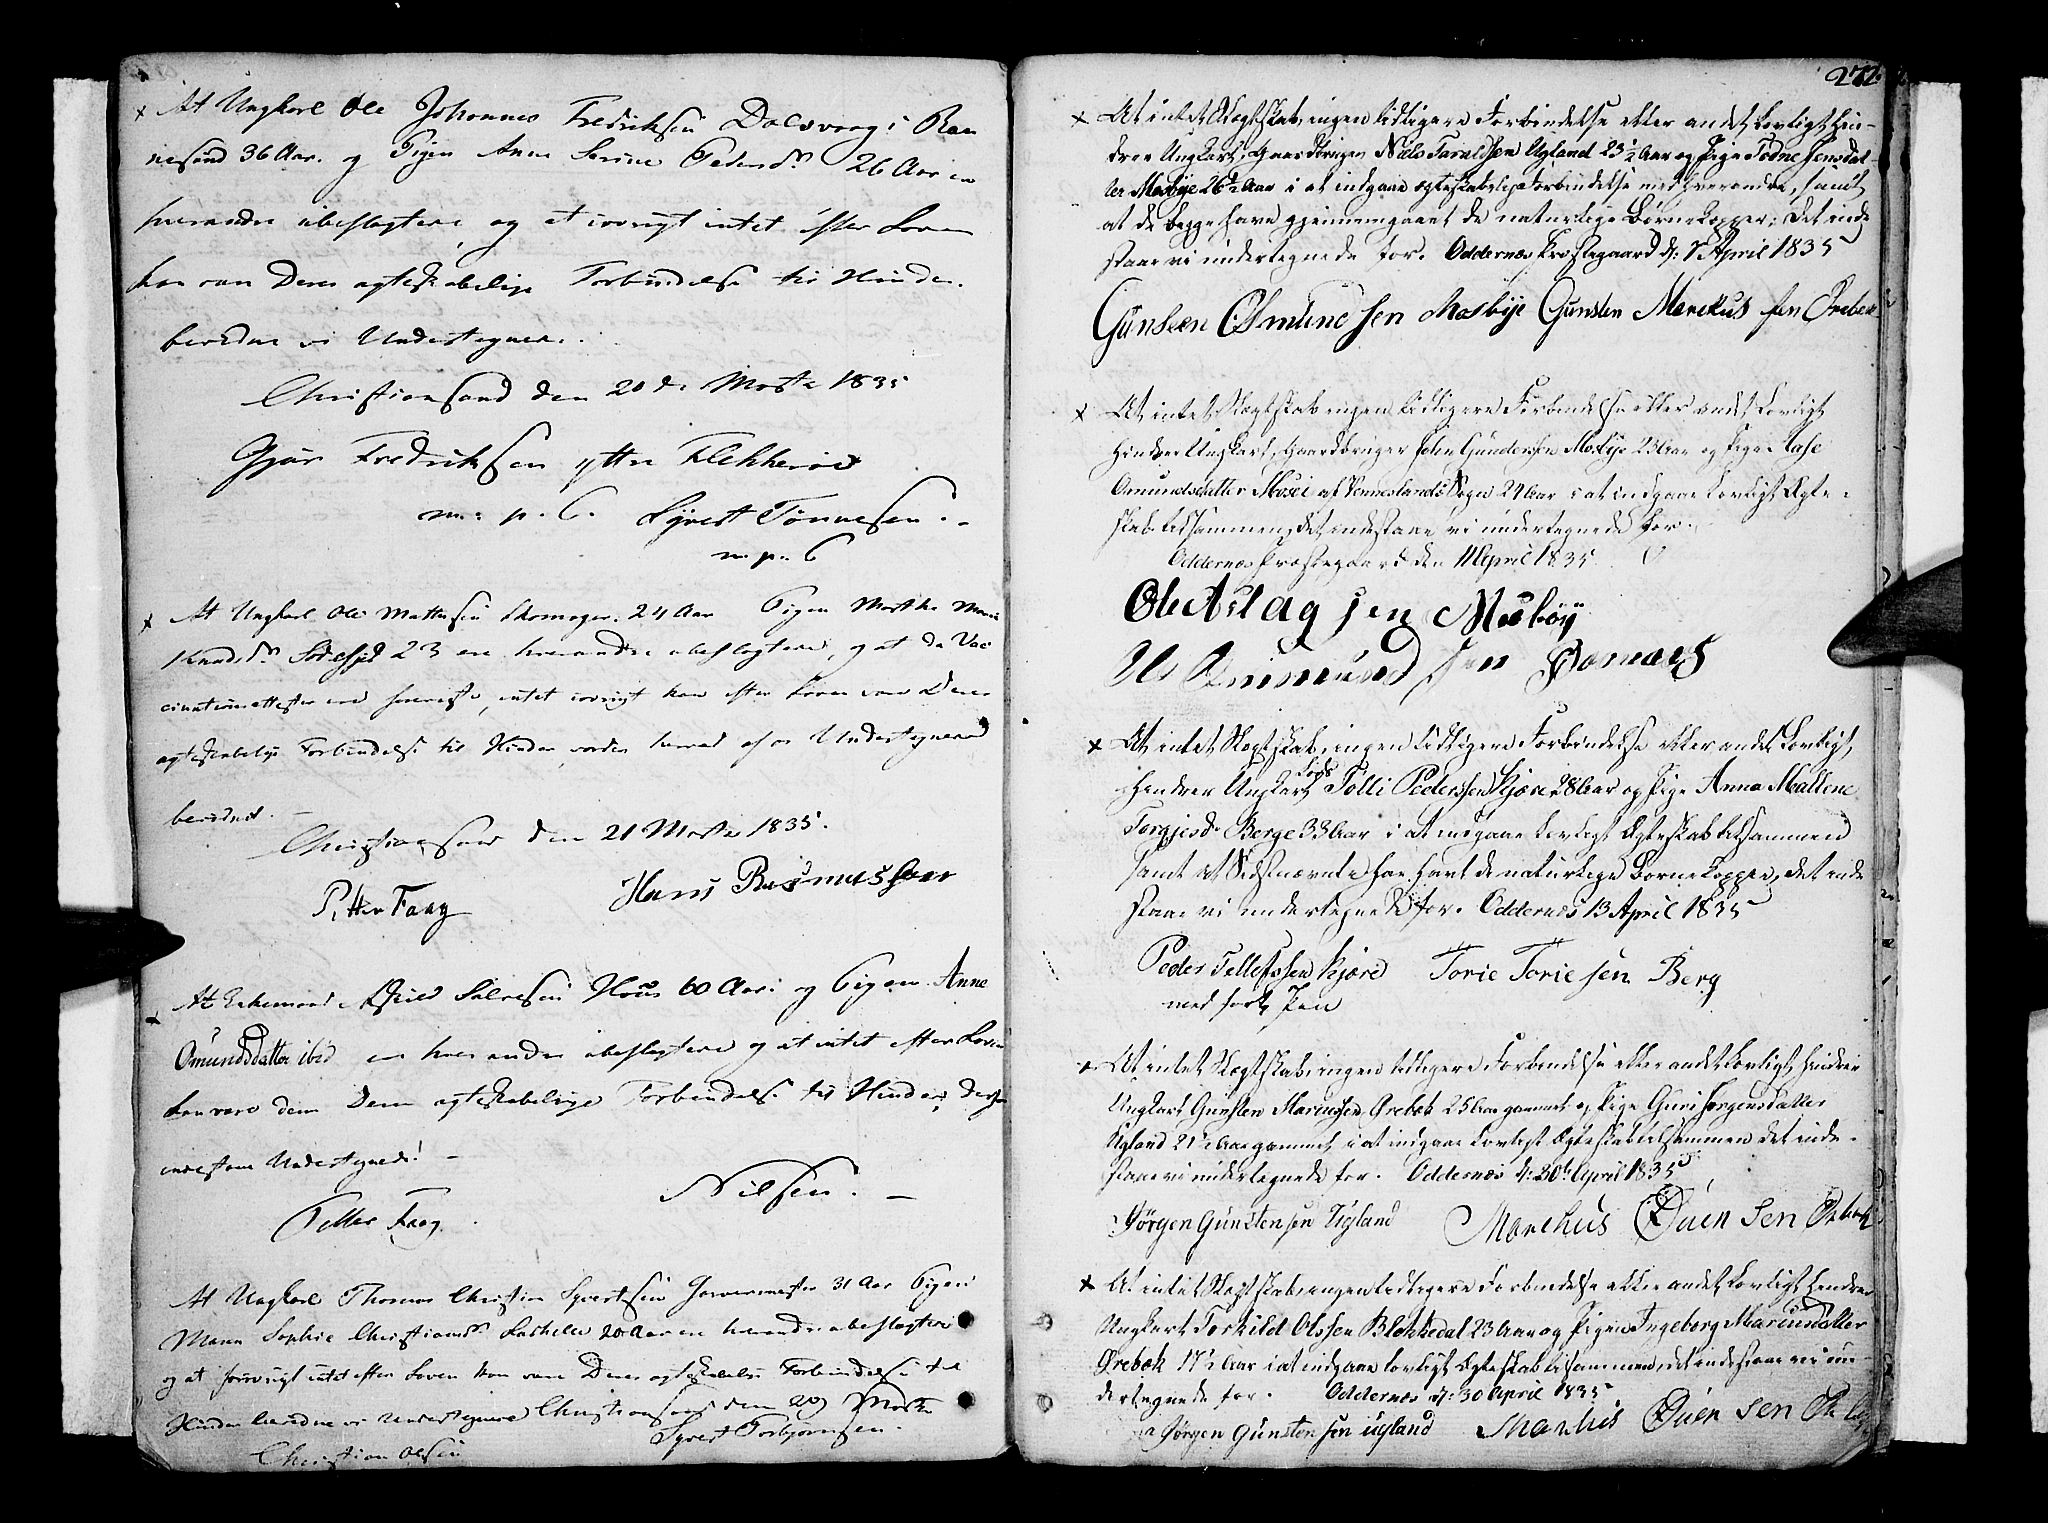 At Ungkarl Ole Johannes Fredriksen Dalsvaag i Ran
nesund 36 Aar. og Pigen Anne Serine Pedersd. 26 Aar ere
hverandre ubeslægtede og at iøvrigt intet efter Loven
kan være Deres ægteskabelige Forbindelse til Hinder.
bevidne vi Undertegnede.
Christiansand den 20de Marts 1835
Gjær Fredriksen yttre Flekkerøe
m: p. C. Syvert Tønnesen.
m. p. C
At Ungkarl Ole Mathisen Skomager. 24 Aar Pigen Marthe Marie
Knudsd. 23 ere hverandre ubeslægtede, og at da Vac
cinationsattester ere foreviste, intet iøvrigt kan efter Loven være Deres
ægteskabelige Forbindelse til Hinder, vorder herved af os Undertegnede
bevidnet.
Christiansand den 21 Marts 1835.
Petter Faag Hans Rasmussen
At Enkemand Salvesen 60 Aar: og Pigen Anne
Omundsdatter ibid ere hverandre ubeslægtede og at intet efter Loven
kan være dem Deres ægteskabelige Forbindelse til Hinder, derfor
indestaae Undertegnede! -
Petter Faag. Nielsen. -
At Ungkarl Thomas Christian Syvertsen Garvermester 31 Aar Pigen
Maren Sophie Christiansd. 20 Aar ere hverandre ubeslægtede
og at forøvrigt intet efter Loven kan være Deres ægteskabelige Forbindelse til
Hinder bevidne vi Undertegnede Christiansand den 29 Marts
Syvert Torbjørnsen.
Christian Olsen
272.
At intet Slægtskab, ingen tidligere Forbindelse eller andet Lovligt hin-
drer Ungkarl, Gaardbruger Niels Taraldsen Ugland 23½ Aar og Pige Todne Jensdat-
ter Mosbye 26½ Aar i at indgaae ægteskabelig Forbindelse med hverandre, samt
at de begge have gjennemgaaet de naturlige Børnekopper; det inde
staae vi undertegnede for. Oddernæs Præstegaard d: 7 April 1835
Gunsten Omundsen Mosbye Gunsten Marckus sen Örebek
At intet Slægtskab ingen tidligere Forbindelse eller andet Lovligt
hindrer Ungkarl, Gaardbruger John Gundersen Mosbye 23 Aar og Pige Aase
Omundsdatter Mosei af Venneslands Sogn 24 Aar i at indgaae Lovligt Ægte-
skab tilsammen, det indestaae vi undertegnede for.
Oddernæs Præstegaard den 11 April 1835
Ole Aslag sen Mosböy
At intet Slægtskab, ingen tidligere Forbindelse eller andet Lovligt,
hindrer Ungkarl Lods Tolli Pedersen Kjære 28 Aar og Pige Anna Mallene
Torgjesd. Berge 33 Aar i at indgaae lovligt Ægteskab tilsammen
samt at Sidstnævnte har havt de naturlige Børnekopper, det inde
staae vi undertegnede for. Oddernæs 13 April 1835
Peder Tellefssen Kjære Torie Toriesen Berg
med førte Pen
At intet Slægtskab, ingen tidligere Forbindelse eller andet Lovligt hindrer
Ungkarl Gunsten Marcussen Ørebek 25 Aar gammel og Pige Guri Jørgensdatter
Ugland 21½ Aar gammel i at indgaae lovligt Ægteskab tilsammen det inde-
staae vi undertegnede for. Oddernæs d: 20de April 1835
Jørgen Gunstensen Ugland Marchus Ouen sen Örebek
At intet Slægtskab, ingen tidligere Forbindelse eller andet Lovligt hindrer
Ungkarl Torkild Olssen Blekkedal 23 Aar og Pigen Ingeborg Marcusdatter
Ørebæk 17½ Aar i at indgaae lovligt Ægteskab tilsammen, det indestaae vi un-
dertegnede for. Oddernæs d: 30 April 1835
Jørgen Gunsten sen Ugland Marchus Ouen sen